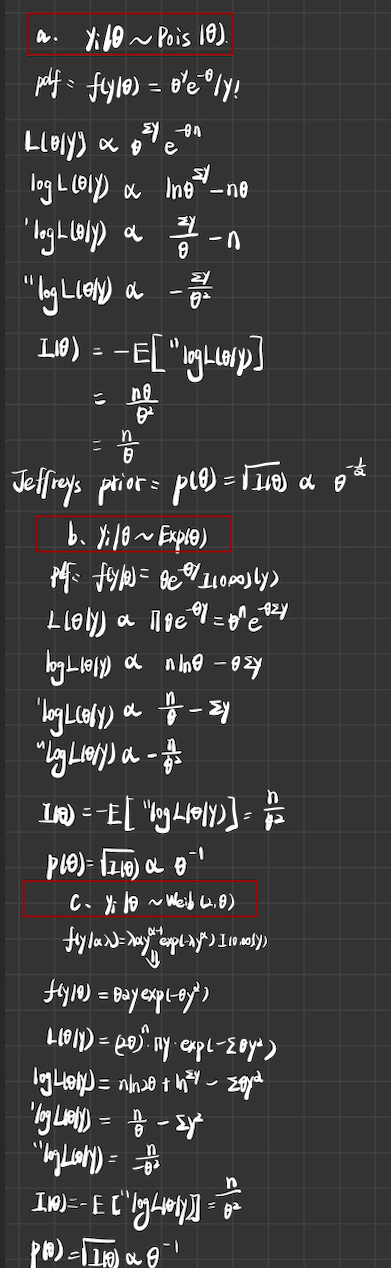 a. yi|θ ~ Pois(θ).
pdf = f(y|θ) = θ^y e^-θ / y!
L(θ|y) ∝ θ^Σy e^-θn
log L(θ|y) ∝ lnθ^Σy - nθ
'log L(θ|y) ∝ Σy/θ - n
"log L(θ|y) ∝ - Σy/θ²
I(θ) = -E["log L(θ|y)]
= nθ/θ²
= n/θ
Jeffreys prior = p(θ) = √I(θ) ∝ θ^-1/2
b. yi|θ ~ Exp(θ)
pdf: f(y|θ) = θe^-θy I(0,∞)(y)
L(θ|y) ∝ Πθe^-θy = θ^n e^-θΣy
log L(θ|y) ∝ n lnθ - θΣy
'log L(θ|y) ∝ n/θ - Σy
"log L(θ|y) ∝ - n/θ²
I(θ) = -E["log L(θ|y)] = n/θ²
p(θ) = √I(θ) ∝ θ^-1
c. yi|θ ~ Weib(2,θ)
f(y|αλ) = λαy^α-1 exp(-λy^α) I(0,∞)(y)
⇓
f(y|θ) = θ2y exp(-θy²)
L(θ|y) = (2θ)^n · Πy · exp(-Σθy²)
log L(θ|y) = n ln2θ + ln^Σy - Σθy²
'log L(θ|y) = n/θ - Σy²
"log L(θ|y) = n/-θ²
I(θ) = -E["log L(θ|y)] = n/θ²
p(θ) = √I(θ) ∝ θ^-1